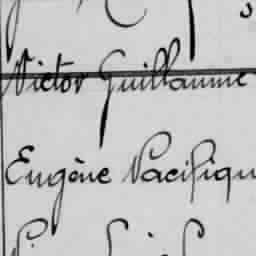 Victor Guillaume
Eugène Pacifiqu